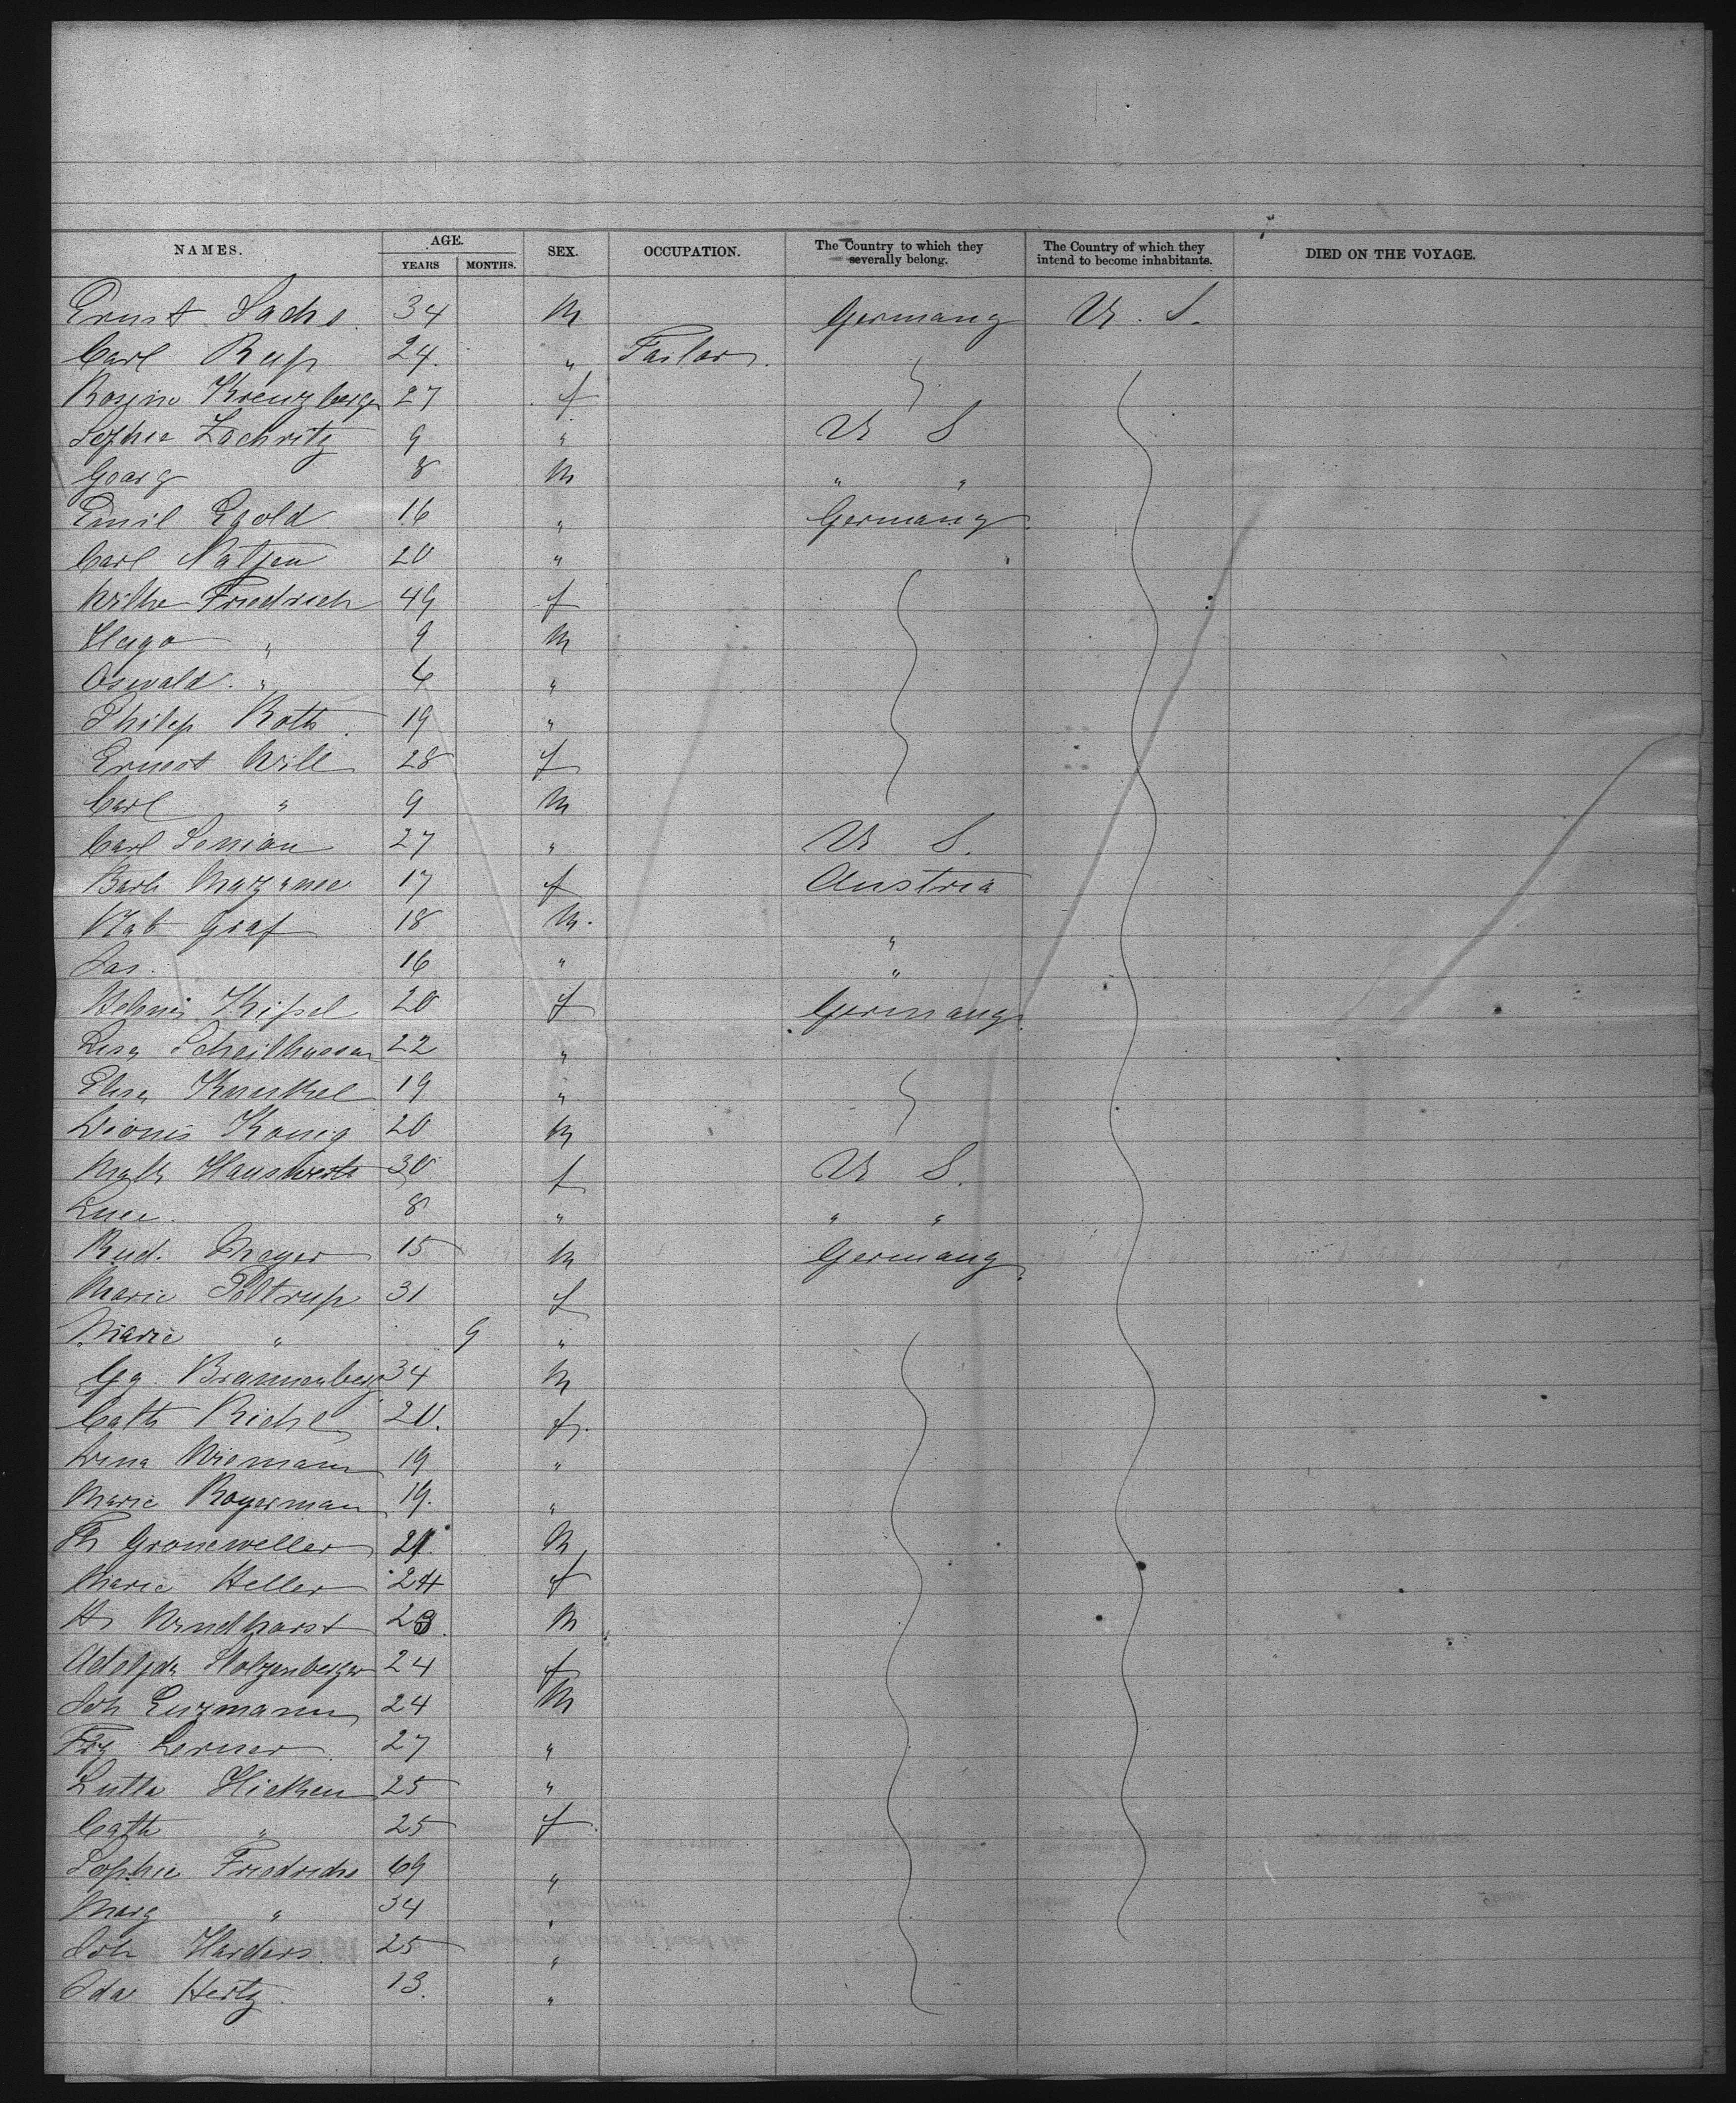 NAMES. AGE. YEARS MONTHS. SEX. OCCUPATION. The Country to which they severally belong. The Country of which they intend to become inhabitants. DIED ON THE VOYAGE.
Ernst Sachs 34 M Germany U. S.
Carl Rupp 24. " Tailor.
Rosine Kreuzberger 27 f
Sophie Zachritz 9 " U S
Georg 8 M " "
Emil Egold 16 " Germany
Carl Natjen 20 "
Wilhe Friedrich 49 f
Hugo " 9 M
Oswald " 4 "
Philip Roth 19 "
Ernest Will 28 f
Carl " 9 M
Carl 27 " U S.
Barb 17 f Austria
Graf 18 M. "
Jas. 16 " "
Kissel 20 f Germany
Lisa Scheilhussen 22 "
Elisa Kunkel 19 "
Dionis Konig 20 M
Math Hauswerth 30 f U S.
8 " "
Rud. Meyer 15 M Germany
Marie Poltrup 31 f
Marie " 9 "
Gg. Brannenberg 34 M
Cath Riehl 20. f.
Dina Wiemann 19 "
Marie Rogerman 19. "
Th Groneweller 21. M
Marie Heller 24 f
Hr Windhorst 23 M
Adelyda Stolzenberger 24 f
Joh Enzmann 24 M
Frz Lerner 27 "
Lutta Hicken 25 "
Cath " 25 f
Sophie Friedrichs 69 "
Marg " 34 "
Joh Harders 25 "
Ida Hertz. 13. "